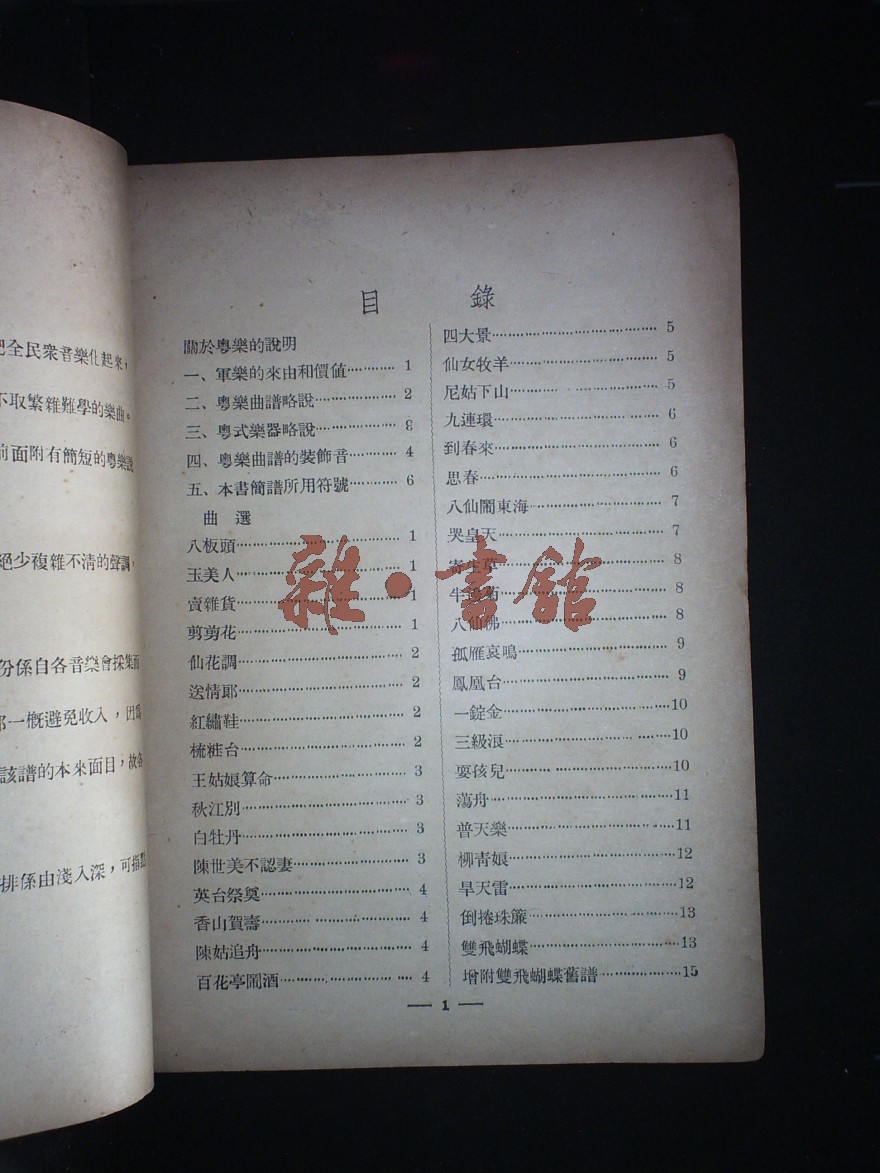 把全民衆音樂化起來，
不取繁雜難學的樂曲。
前面附有簡短的粵樂說
絕少複雜不清的聲調，
份係自各音樂會採集而
一慨避免收入，因爲
該譜的本來面目，故各
排係由淺入深，可指
目錄
關於粵樂的說明
一、軍樂的來由和價値…………1
二、粵樂曲譜略說…………2
三、粵式樂器略說…………3
四、粵樂曲譜的裝飾音…………4
五、本書簡譜所用符號…………6
曲選
八板頭…………1
玉美人…………1
賣雜貨…………1
剪剪花…………1
仙花調…………2
送情郎…………2
紅繡鞋…………2
梳粧台…………2
王姑娘算命…………3
秋江別…………3
白牡丹…………3
陳世美不認妻…………3
英台祭奠…………4
香山賀壽…………4
陳姑追舟…………4
百花亭鬧酒…………4
四大景…………5
仙女牧羊…………5
尼姑下山…………5
九連環…………6
到春來…………6
思春…………6
八仙鬧東海…………7
哭皇天…………7
寄生草…………8
半邊菊…………8
八仙佛…………8
孤雁哀鳴…………9
鳳凰台…………9
一錠金…………10
三級浪…………10
耍孩兒…………10
蕩舟…………11
普天樂…………11
柳青娘…………12
旱天雷…………12
倒捲珠簾…………13
雙飛蝴蝶…………13
增附雙飛蝴蝶舊譜…………15
— 1 —
雜·書館